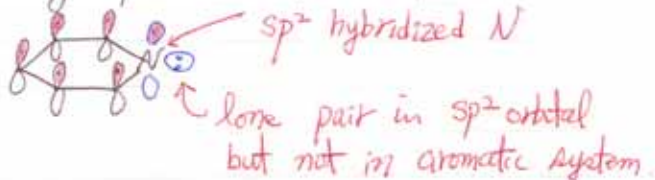 sp² hybridized N
N
lone pair in sp² orbital
but not in aromatic system.